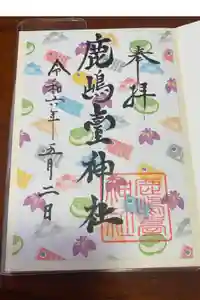 奉拝
鹿嶋臺神社
令和六年五月二日